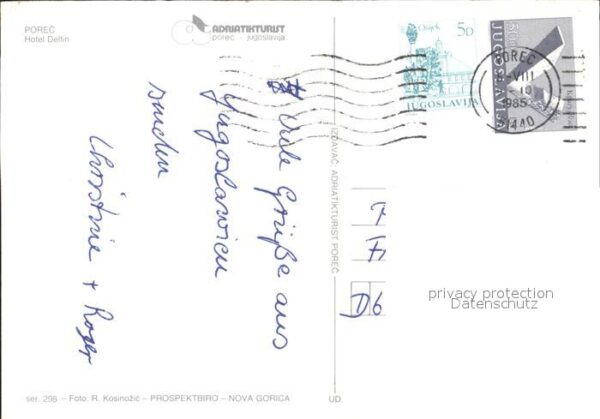 POREČ
Hotel Delfin
ADRIATIKTURIST
poreč - jugoslavija
Osijek
5D
JUGOSLAVIJA
POREČ
-VIII
10
1985
51440
Viele Grüße aus
Jugoslawien
senden
Christine + Roger
IZDAVAČ ADRIATIKTURIST POREČ
D6
privacy protection
Datenschutz
ser. 298 – Foto: R. Kosinožić – PROSPEKTBIRO – NOVA GORICA
UD